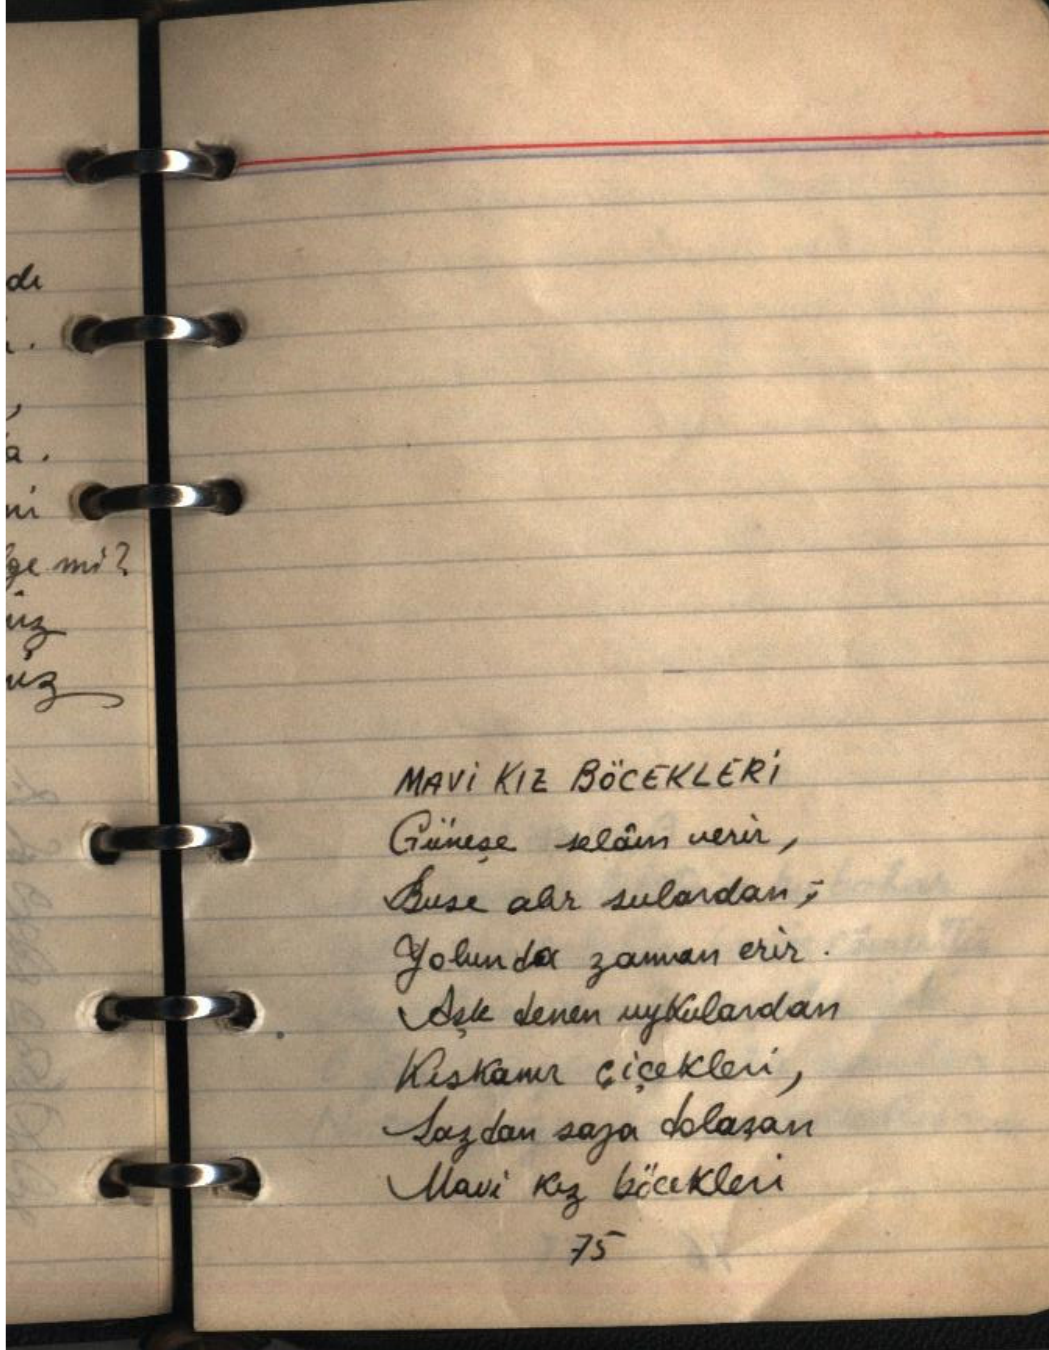 dı
.
,
a.
ni
ge mi?
üz
üz
MAVİ KIZ BÖCEKLERİ
Güneşe selâm verir,
Buse alır sulardan;
Yolunda zaman erir.
Aşk denen uykulardan
Kıskanır çiçekleri,
Sazdan saza dolaşan
Mavi kız böcekleri
75